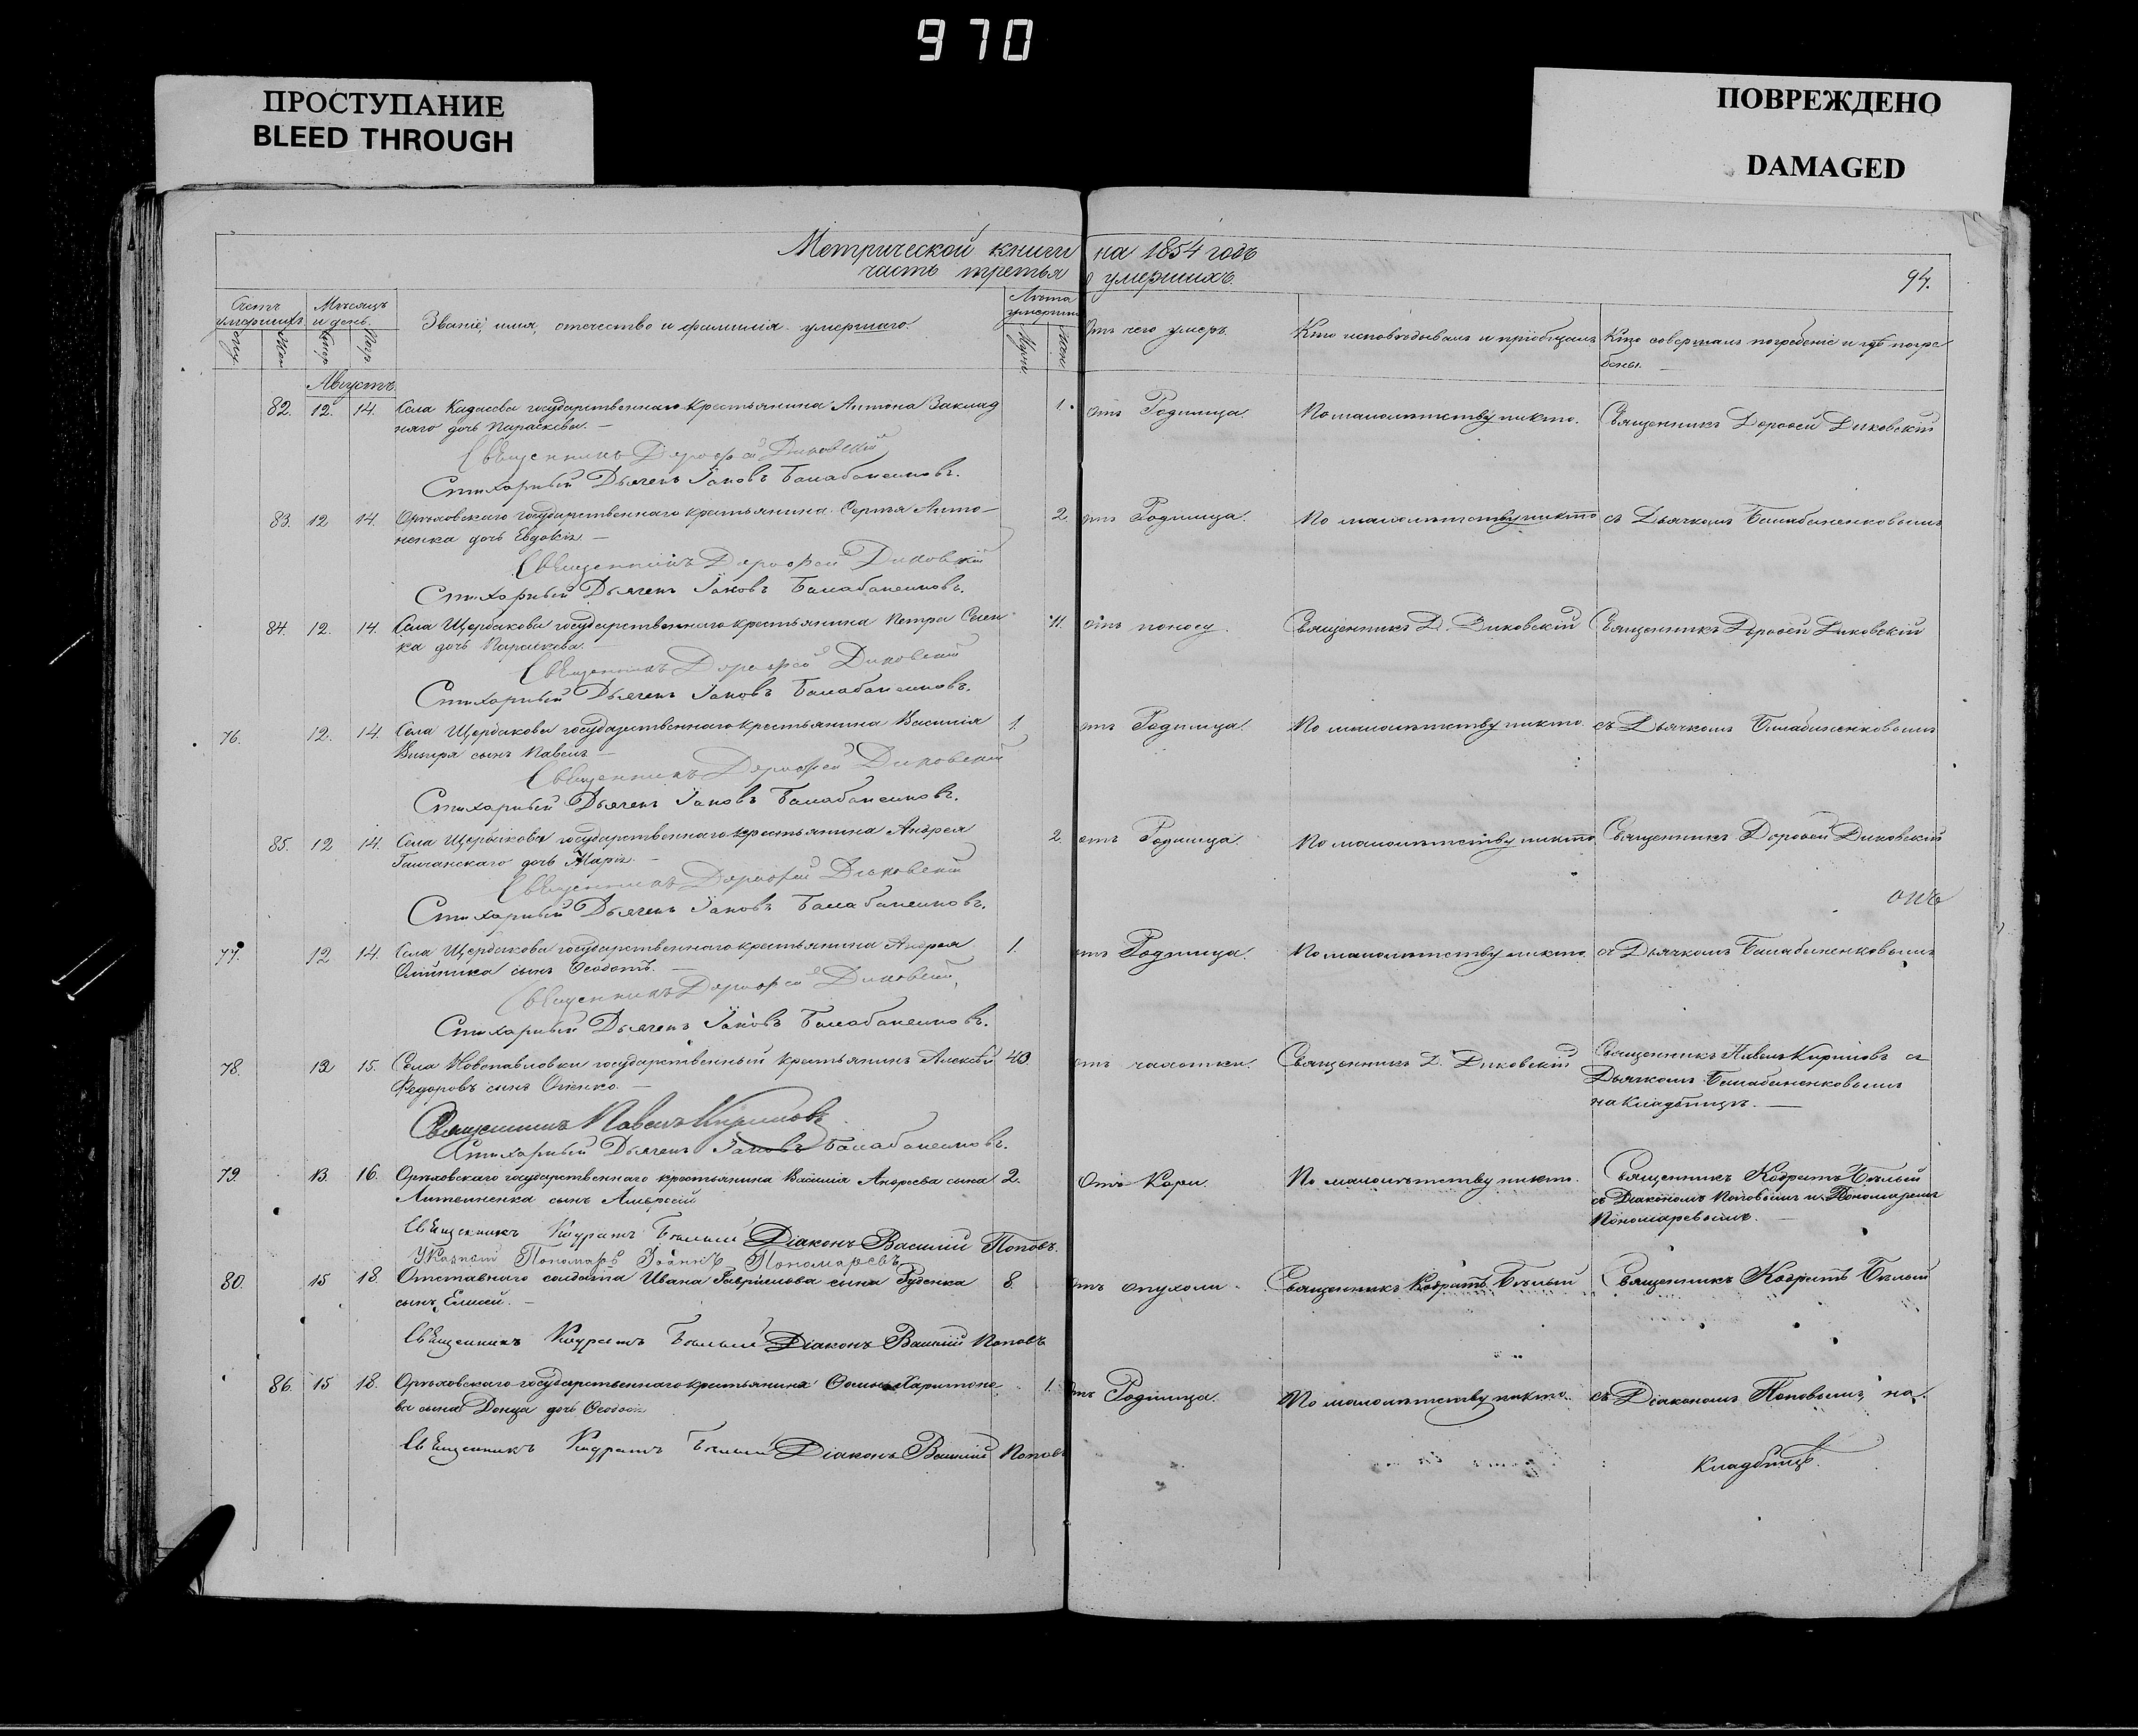 970
ПРОСТУПАНИЕ
BLEED THROUGH
ПОВРЕЖДЕНО
DAMAGED
Метрической книги на 1854 годъ
часть третья о умершихъ.
94.
Счетъ умершихъ.
Мѣсяцъ и день.
Званіе, имя, отчество и фамилія умершаго.
Лѣта умершаго
Отъ чего умеръ.
Кто исповѣдывалъ и пріобщалъ
Кто совершалъ погребеніе и гдѣ погребены.
Муж. Жен.
Августъ.
82. 12. 14. Села государственнаго крестьянина Антона Заклад 1. отъ Родимца. По малолѣтству никто. Священникъ Дорофей Диковскій
наго дочь Параскева. —
Священникъ Дорофей Диковскій
Стихарный Дьячекъ Іаковъ Балабаненковъ.
83. 12 14. Орѣховскаго государственнаго крестьянина Сергѣя Анто- 2 отъ Родимца. По малолѣтству никто съ Дьячкомъ Балабаненковымъ
ненка дочь Евдокія. —
Священникъ Дорофей Диковскій
Стихарный Дьячекъ Іаковъ Балабаненковъ.
84. 12. 14. Села Щербакова государственнаго крестьянина Петра 11. отъ поносу. Священникъ Д. Диковскій Священникъ Дорофей Диковскій
ка дочь Параскева. —
Священникъ Дорофей Диковскій
Стихарный Дьячекъ Іаковъ Балабаненковъ.
76. 12. 14. Села Щербакова государственнаго крестьянина Василія 1. отъ Родимца. По малолѣтству никто. съ Дьячкомъ Балабаненковымъ
сынъ Павелъ. —
Священникъ Дорофей Диковскій
Стихарный Дьячекъ Іаковъ Балабаненковъ.
85. 12 14. Села Щербакова государственнаго крестьянина Андрея 2. отъ Родимца. По малолѣтству никто Священникъ Дорофей Диковскій
Галчанскаго дочь Марія. —
Священникъ Дорофей Диковскій
онъ
Стихарный Дьячекъ Іаковъ Балабаненковъ.
77. 12 14. Села Щербакова государственнаго крестьянина Андрея 1. отъ Родимца. По малолѣтству никто съ Дьячкомъ Балабаненковымъ
Олійника сынъ Ѳеодотъ. —
Священникъ Дорофей Диковскій
Стихарный Дьячекъ Іаковъ Балабаненковъ.
78. 12 15. Села Новопавловки государственный крестьянинъ Алексѣй 40. отъ чахотки. Священникъ Д. Диковскій Священникъ Павелъ Кириловъ съ
Федоровъ сынъ —
Дьячкомъ Балабаненковымъ
на кладбищѣ. —
Священникъ Павелъ Кириловъ
Стихарный Дьячекъ Іаковъ Балабаненковъ.
79. 13. 16. Орѣховскаго государственнаго крестьянина Василія Андреева сына 2. Отъ Кори. По малолѣтству никто. Священникъ Кодратъ Бѣлый
Литвиненка сынъ Амвросій
съ Діакономъ Поповымъ и Пономаремъ
Пономаревымъ. —
Священникъ Кодратъ Бѣлый Діаконъ Василій Поповъ.
Указный Пономарь Іоаннъ Пономаревъ
80. 15 18. Отставнаго солдата Ивана Гаврилова сына Руденка 8. отъ опухоли. Священникъ Кодратъ Бѣлый Священникъ Кодратъ Бѣлый
сынъ Елисей. —
Священникъ Кодратъ Бѣлый Діаконъ Василій Поповъ
86. 15 18. Орѣховскаго государственнаго крестьянина Осипа Харитоно 1. отъ Родимца. По малолѣтству никто. съ Діакономъ Поповымъ, на
ва сына Донца дочь Ѳеодосія
кладбищѣ.
Священникъ Кодратъ Бѣлый Діаконъ Василій Поповъ